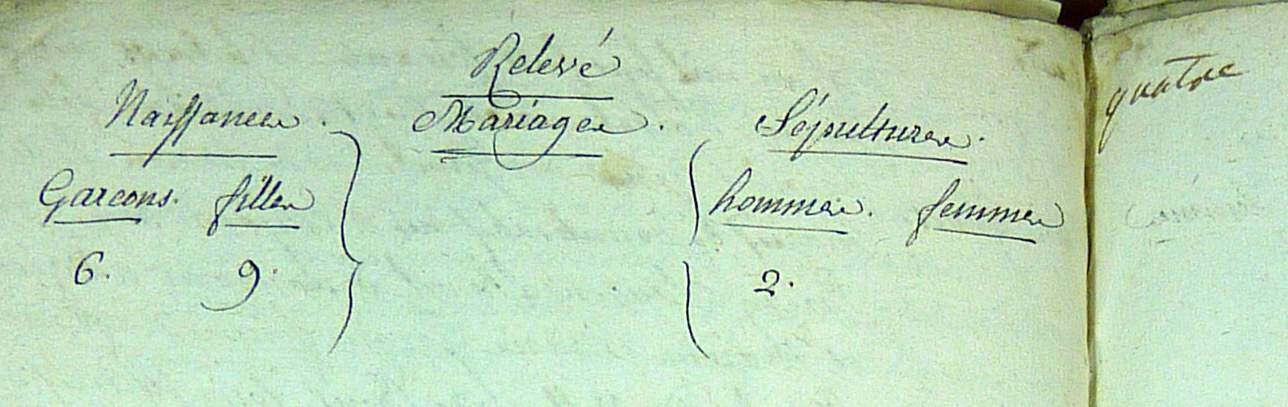 Relevé
Naissances. Mariages. Sépultures.
Garcons. filles hommes. femmes
6. 9. 2.
quatre